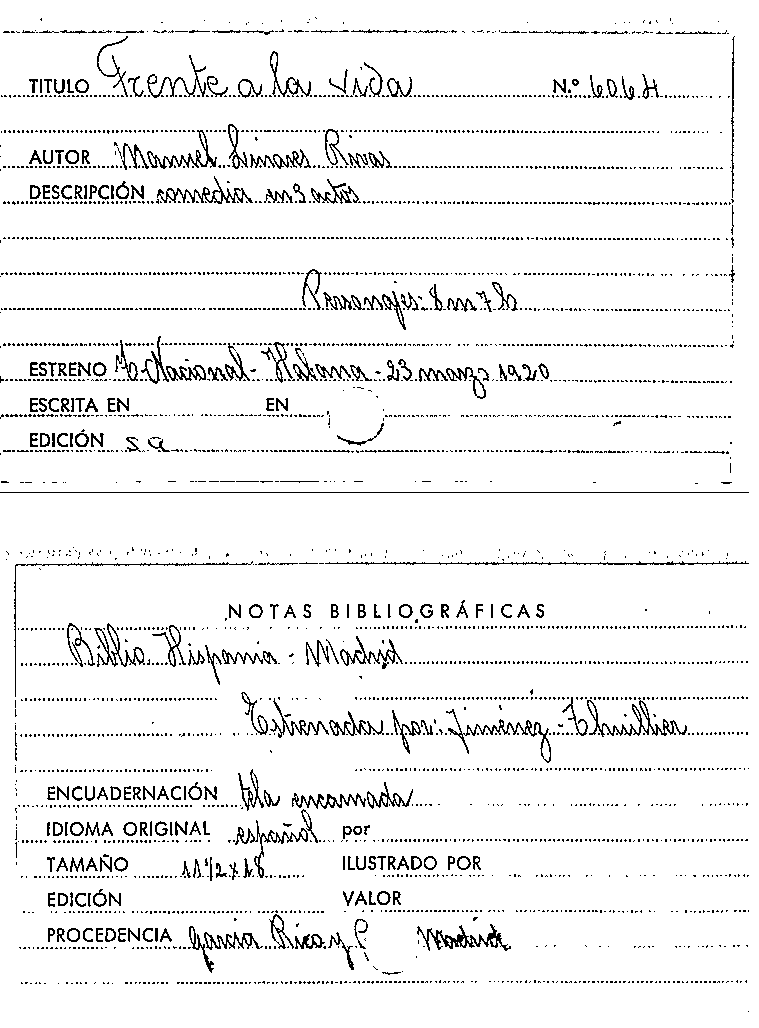 TITULO Frente a la vida N.º 6064
AUTOR Manuel Linares Rivas
DESCRIPCIÓN comedia en 3 actos
Personajes: 8 m 7 h
ESTRENO To Nacional - Habana - 23 marzo 1920
ESCRITA EN EN
EDICIÓN s a
NOTAS BIBLIOGRÁFICAS
Biblio. Hispania - Madrid
Estrenada por: Jiménez - Thuillier
ENCUADERNACIÓN tela encarnada
IDIOMA ORIGINAL español por
TAMAÑO 11 1/2 x 18 ILUSTRADO POR
EDICIÓN VALOR
PROCEDENCIA García Rico y Madrid